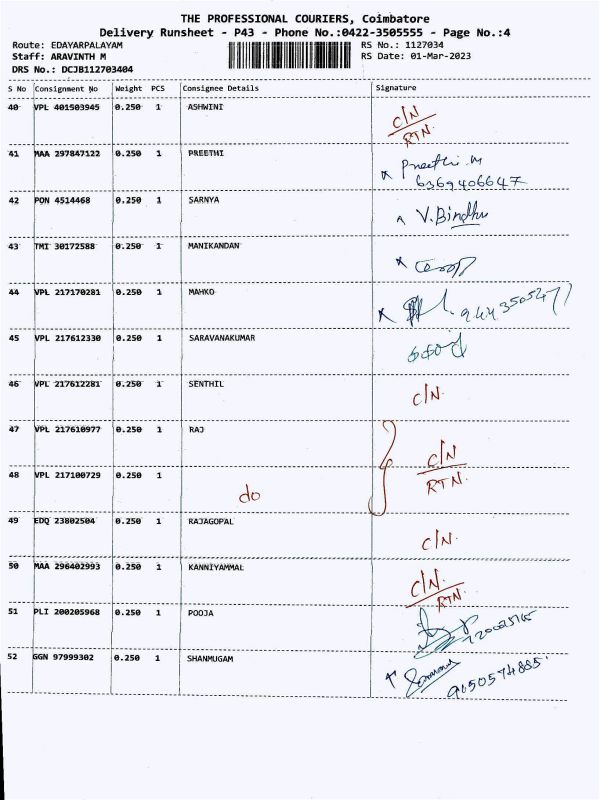 THE PROFESSIONAL COURIERS, Coimbatore
Delivery Runsheet - P43 - Phone No.:0422-3505555 - Page No.:4
Route: EDAYARPALAYAM RS No.: 1127034
Staff: ARAVINTH M RS Date: 01-Mar-2023
DRS No.: DCJB112703404
S No Consignment No Weight PCS Consignee Details Signature
40 VPL 401503945 0.250 1 ASHWINI C/N
RTN.
41 MAA 297847122 0.250 1 PREETHI Preethi.M
6369406647
42 PON 4514468 0.250 1 SARNYA V.Bindhu
43 TMI 30172588 0.250 1 MANIKANDAN
44 VPL 217170281 0.250 1 MAHKO
45 VPL 217612330 0.250 1 SARAVANAKUMAR
46 VPL 217612281 0.250 1 SENTHIL C/N.
47 VPL 217610977 0.250 1 RAJ C/N
RTN.
48 VPL 217100729 0.250 1 do
49 EDQ 23802504 0.250 1 RAJAGOPAL C/N.
50 MAA 296402993 0.250 1 KANNIYAMMAL C/N.
RTN.
51 PLI 200205968 0.250 1 POOJA
52 GGN 97999302 0.250 1 SHANMUGAM 9050574885.